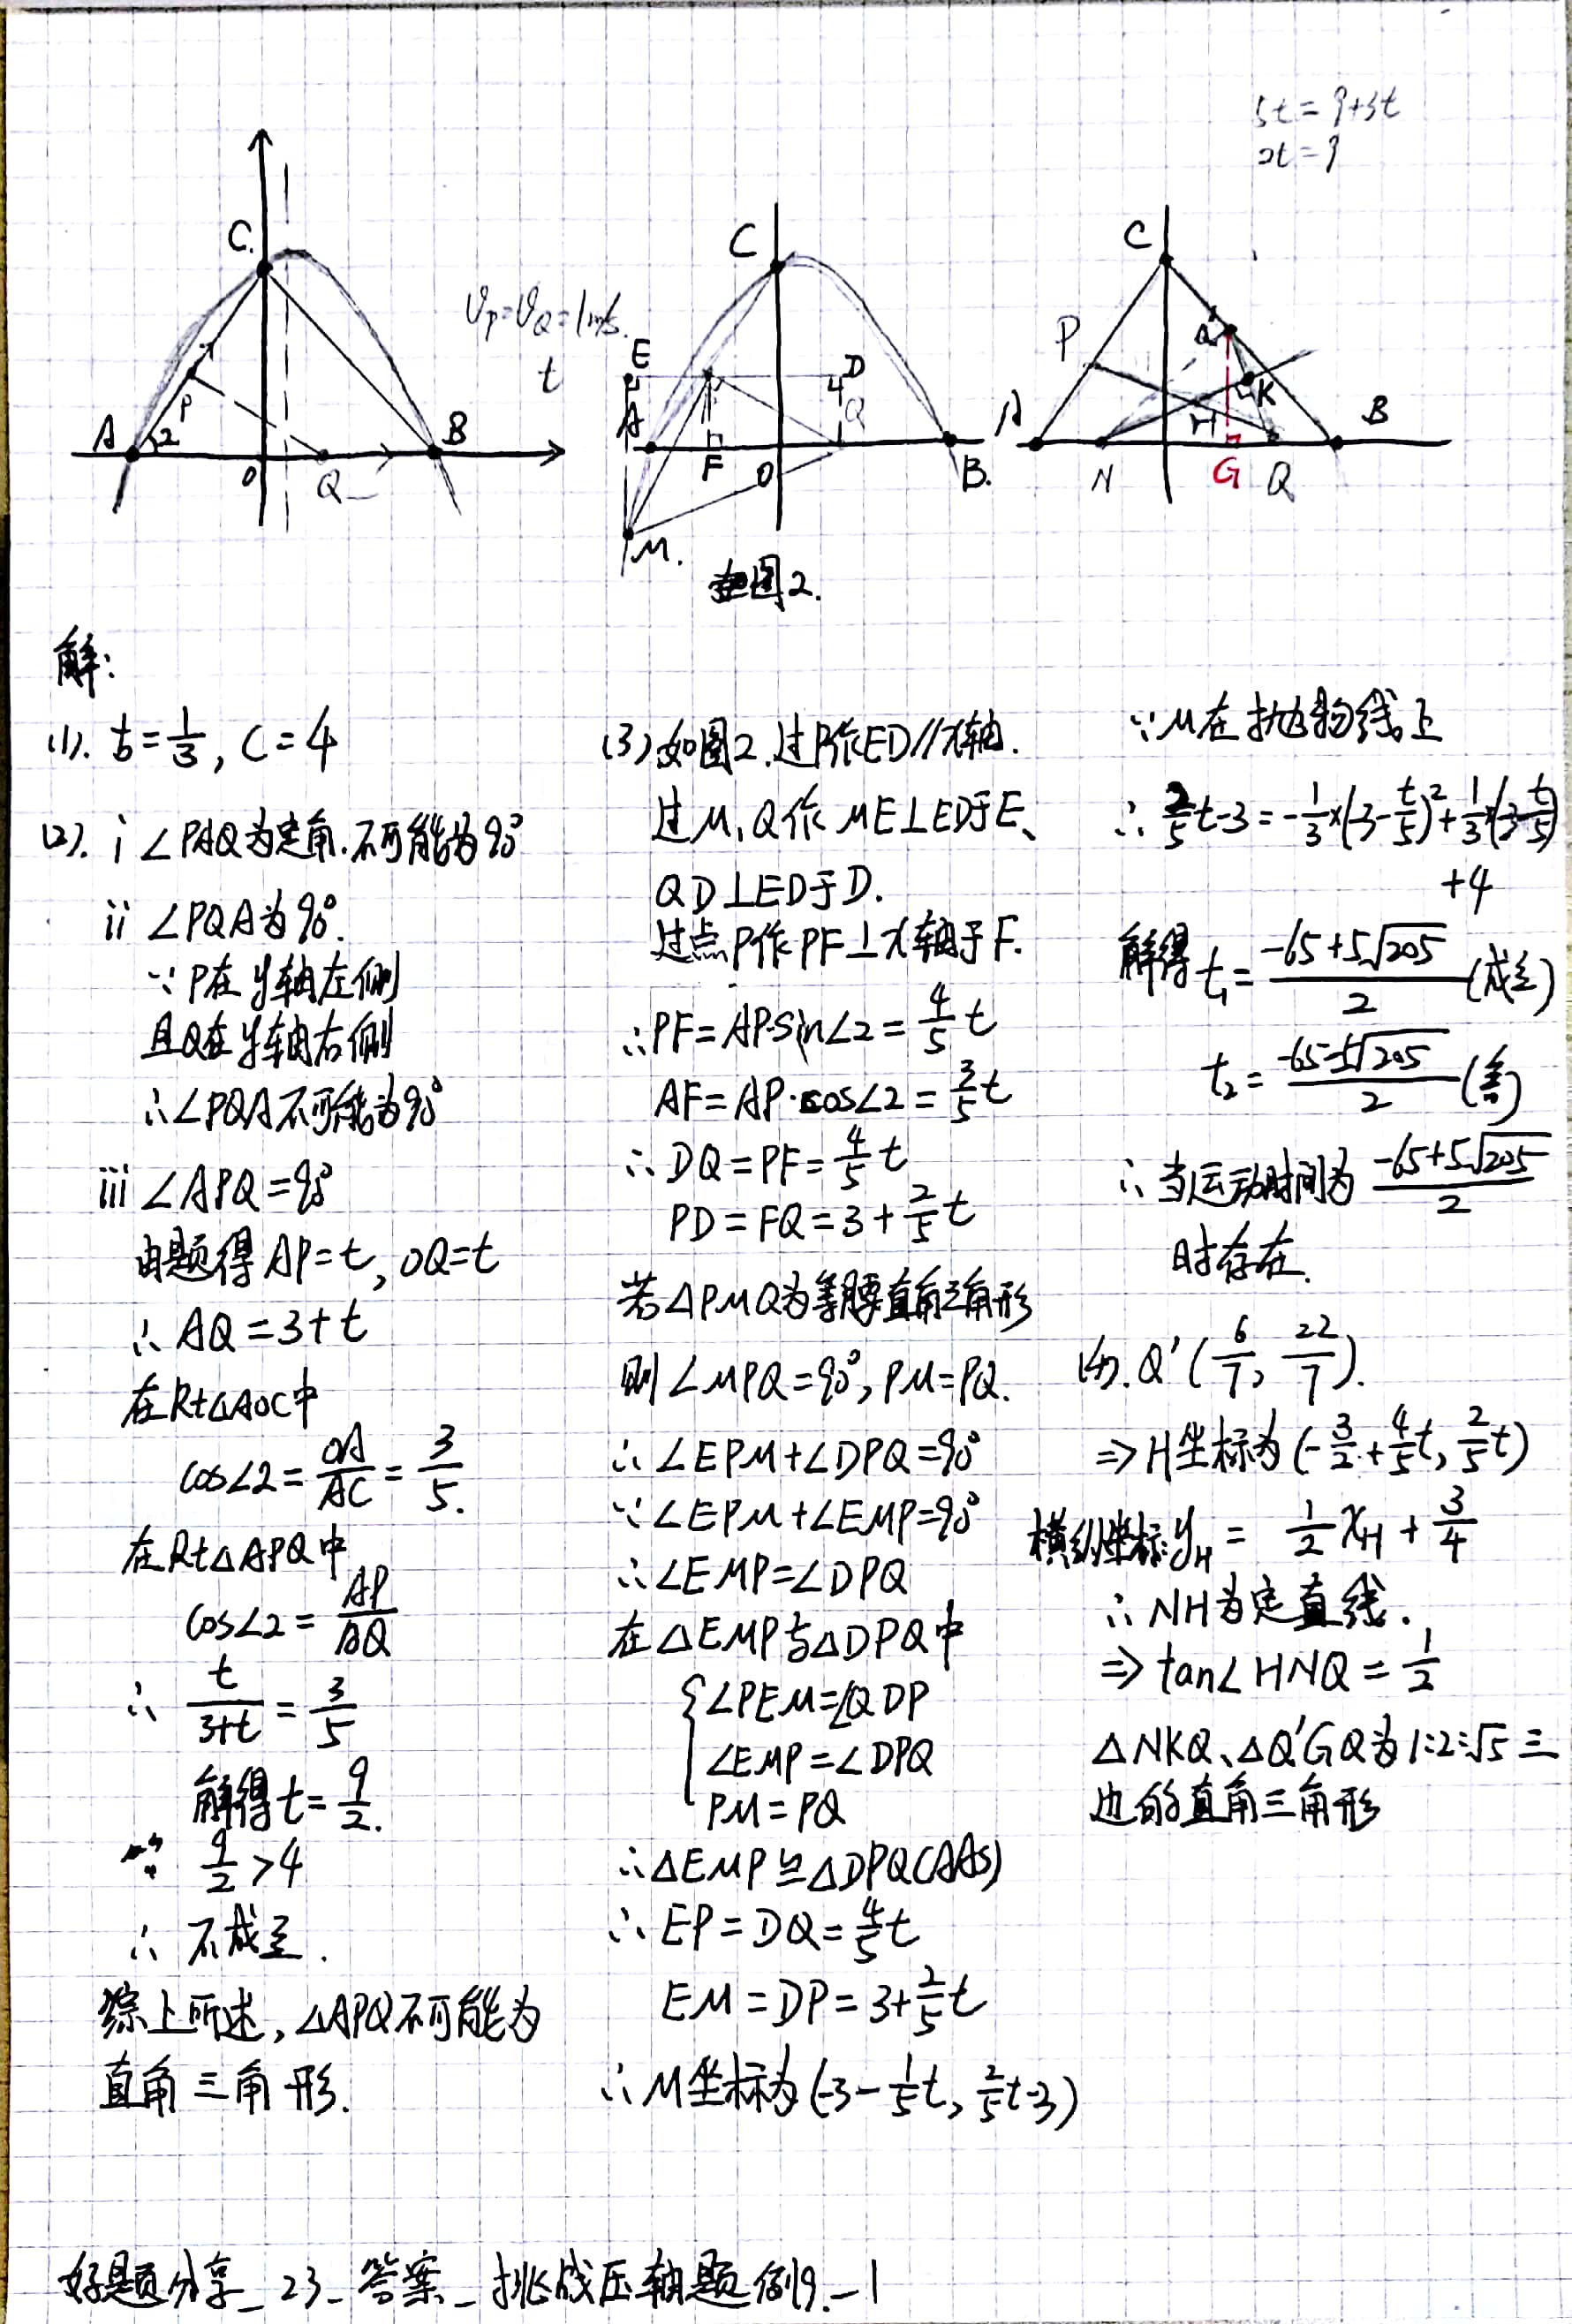 5t=9+3t
2t=9
C
A
2
P
O
Q
B
Vp=VQ=1m/s.
t
C
E
D
A
F
O
Q
B.
M.
图2.
C
P
Q'
K
H
A
N
G
Q
B
解:
(1). b=1/3, C=4
(2). i ∠PAQ为定角.不可能为90°
ii ∠PQA为90°.
∵P在y轴左侧
且Q在y轴右侧
∴∠PQA不可能为90°
iii ∠APQ=90°
由题得AP=t, OQ=t
∴AQ=3+t
在Rt△AOC中
cos∠2=OA/AC=3/5.
在Rt△APQ中
cos∠2=AP/AQ
∴ t/(3+t)=3/5
解得t=9/2.
∵ 9/2>4
∴ 不成立.
综上所述,△APQ不可能为
直角三角形.
(3)如图2.过P作ED//x轴.
过M,Q作ME⊥ED于E、
QD⊥ED于D.
过点P作PF⊥x轴于F.
∴PF=AP·sin∠2=4/5 t
AF=AP·cos∠2=3/5 t
∴DQ=PF=4/5 t
PD=FQ=3+2/5 t
若△PMQ为等腰直角三角形
则∠MPQ=90°,PM=PQ.
∴∠EPM+∠DPQ=90°
∵∠EPM+∠EMP=90°
∴∠EMP=∠DPQ
在△EMP与△DPQ中
{∠PEM=∠QDP
∠EMP=∠DPQ
PM=PQ
∴△EMP≌△DPQ(AAS)
∴EP=DQ=4/5 t
EM=DP=3+2/5 t
∴M坐标为(-3-1/5 t, 2/5 t-3)
∵M在抛物线上
∴ 2/5 t-3=-1/3×(-3-t/5)²+1/3×(-3-t/5)
+4
解得t₁=(-65+5√205)/2 (成立)
t₂=(-65-5√205)/2 (舍)
∴当运动时间为(-65+5√205)/2
时存在.
(4). Q'(6/7, 22/7).
⇒H坐标为(-3/2+4/5 t, 2/5 t)
横纵坐标:yH=1/2 xH+3/4
∴NH为定直线.
⇒tan∠HNQ=1/2
△NKQ、△Q'GQ为1:2:√5三
边的直角三角形
好题分享_23_答案_挑战压轴题例9_1